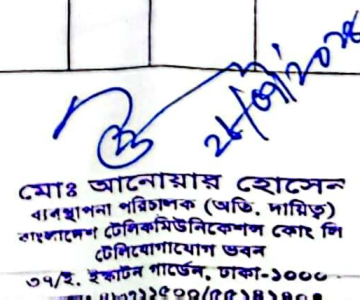 ২৮/০৭/২০২৫
মোঃ আনোয়ার হোসেন
ব্যবস্থাপনা পরিচালক (অতি. দায়িত্ব)
বাংলাদেশ টেলিকমিউনিকেশন্স কোং লি
টেলিযোগাযোগ ভবন
৩৭/ই, ইস্কাটন গার্ডেন, ঢাকা-১০০০